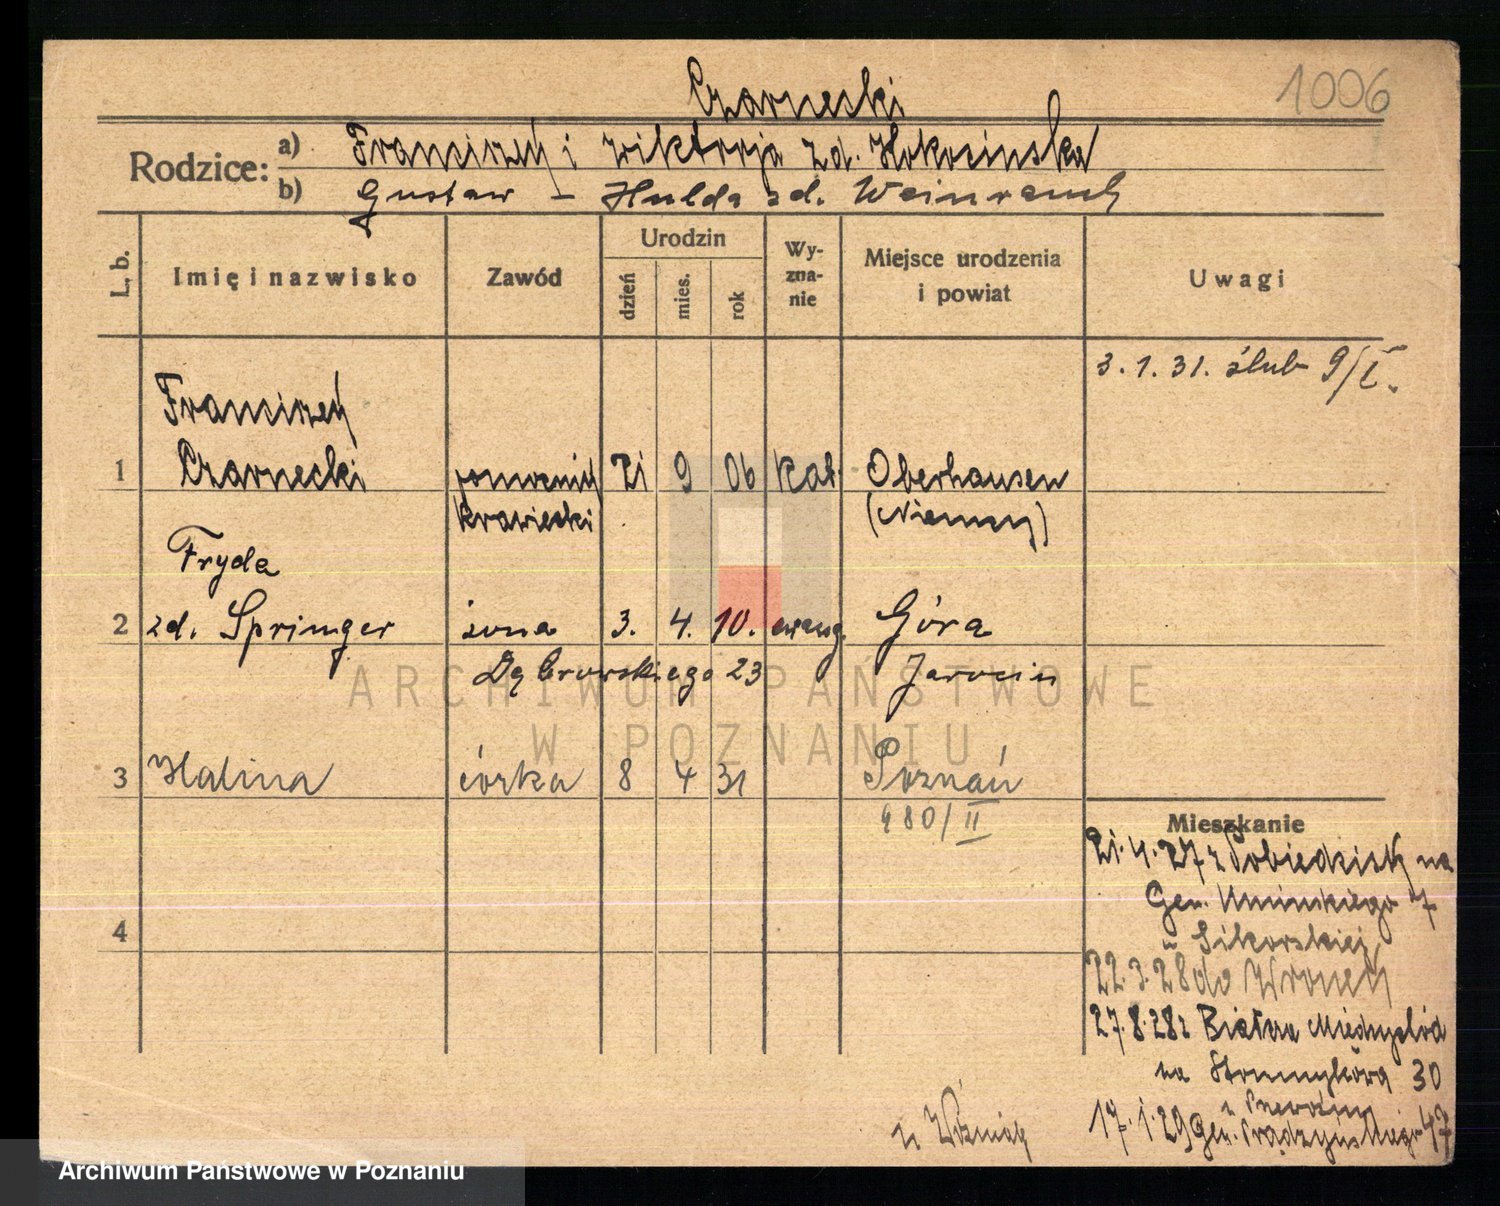 Czarnecki
1006
Rodzice:
a) Franciszek i Wiktorja zd. Hokocinska
b) Gustaw - Hulda zd. Weinrauch
L. b.
Imię i nazwisko
Zawód
Urodzin
dzień
mies.
rok
Wy-
zna-
nie
Miejsce urodzenia
i powiat
Uwagi
3. 1. 31. ślub 9/I.
Franciszek
1 Czarnecki pomocnik 21 9 06 kat. Oberhausen
krawiecki (Niemcy)
Fryda
2 zd. Springer żona 3. 4. 10. ewang. Góra
Dąbrowskiego 23 Jarocin
ARCHIWUM PAŃSTWOWE
W POZNANIU
3 Halina córka 8 4 31 Poznań
980/II
Mieszkanie
21. 4. 27 z Pobiedzisk na
Gen. Umińskiego 7
u Sikorskiej
22. 3. 28 do Wronek
4
27. 8. 28 z
na 30
17. 1. 29 Gen. Prądzyńskiego 47
u Woźniak
Archiwum Państwowe w Poznaniu